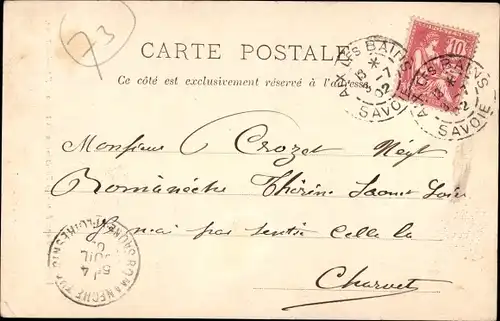 73
CARTE POSTALE
Ce côté est exclusivement réservé à l'adresse
10
AIX LES BAINS
13
3-7
02
SAVOIE
AIX LES BAINS
SAVOIE
Monsieur Crozet Négt
Romanèche Thorins Saone et Loire
Je n'ai pas senti celle là
Charvet
ROMANECHE
5E 4
JUIL
02